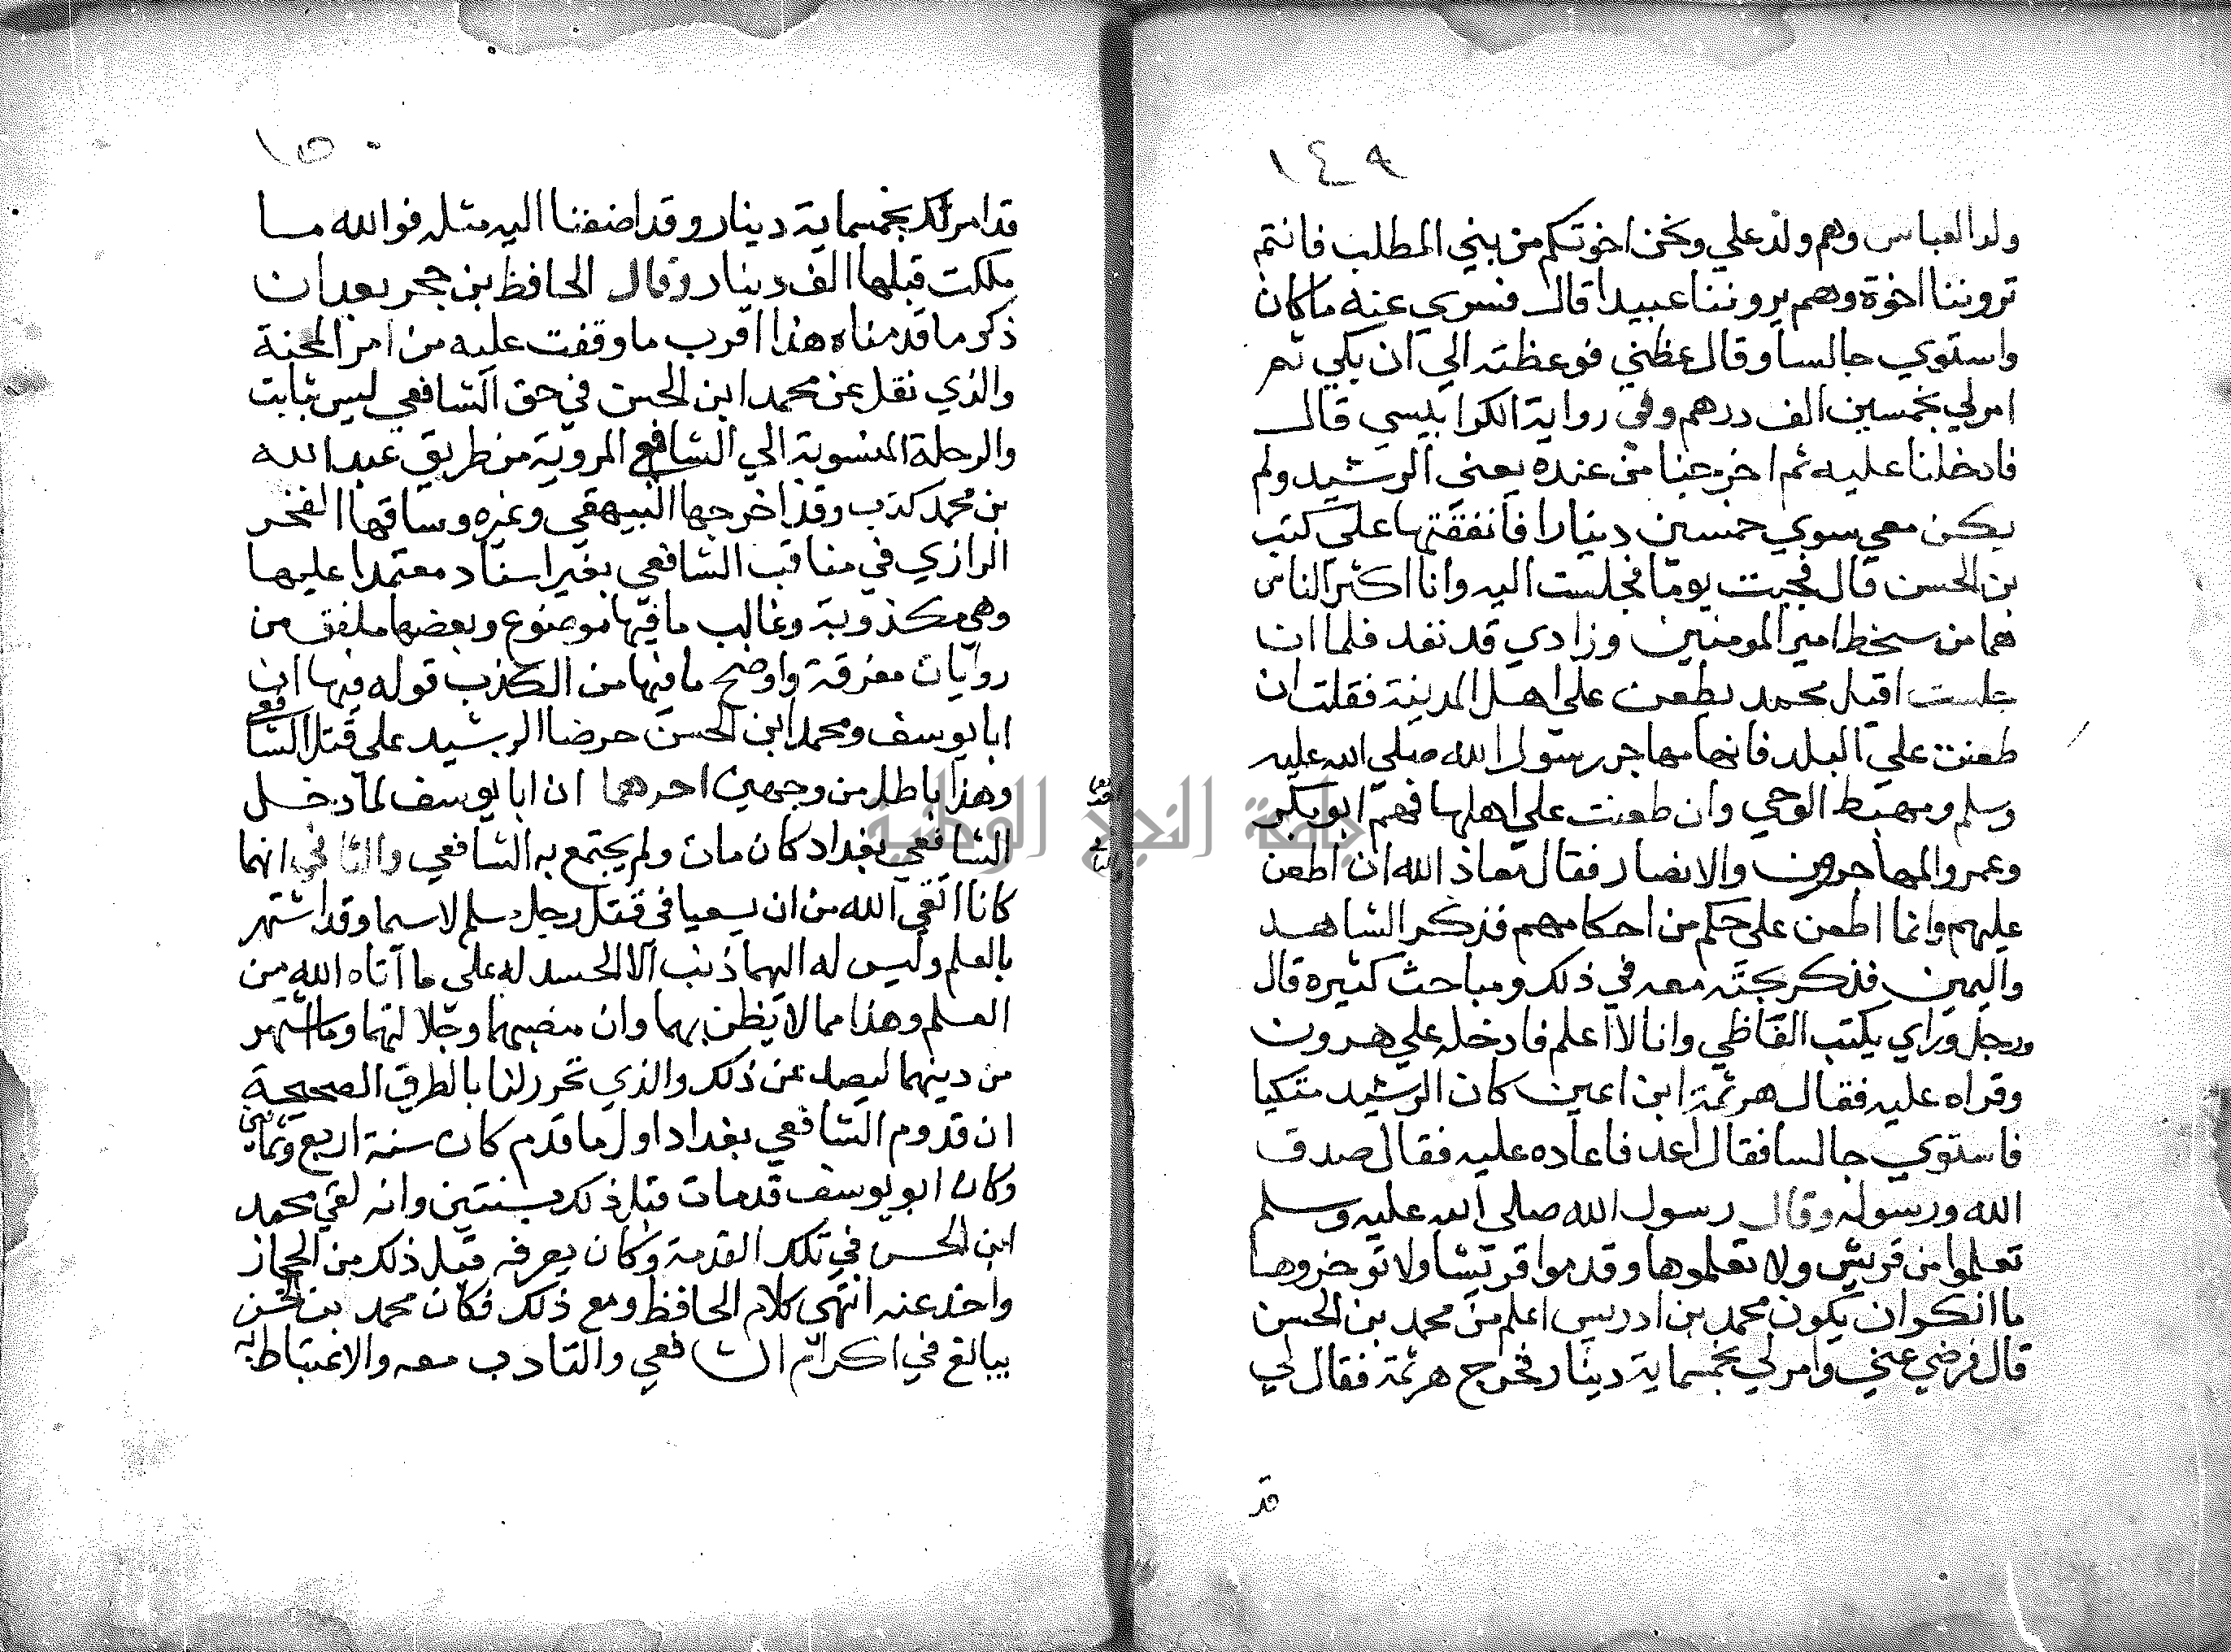 ١٤٩
ولد العباس وهم ولد علي ونحن اخوتكم من بني المطلب فانتم
تروننا اخوة وهم يروننا عبيدا قال فسري عنه ما كان
واستوي جالسا وقال عظني فوعظته الي ان بكي ثم
امر لي بخمسين الف درهم وفي رواية الكرابيسي قال
فادخلنا عليه ثم اخرجنا من عنده يعني الرشيد ولم
يكن معي سوي خمسين دينارا فانفقتها علي كتب
بن الحسن قال فجيت يوما فجلست اليه وانا اكثر الناس
هما من سخط امير المومنين وزادي قد نفد فلما ان
جلست اقبل محمد يطعن علي اهل المدينة فقلت ان
طعنت علي البلد فانها مهاجر رسول الله صلي الله عليه
وسلم ومهبط الوحي وان طعنت علي اهلها فهم ابو بكر
وعمر والمهاجرين والانصار فقال معاذ الله ان اطعن
عليهم وانما اطعن علي حكم من احكامهم فذكر الشاهد
واليمين فذكر بحثه معه في ذلك ومباحث كثيرة قال
ورجل وراي يكتب الفاظي وانا لا اعلم فادخله علي هرون
وقراه عليه فقال هرثمة ابن اعين كان الرشيد متكيا
فاستوي جالسا فقال اعد فاعاده عليه فقال صدق
الله ورسوله وقال رسول الله صلي الله عليه وسلم
تعلموا من قريش ولا تعلموها وقدموا قريشا ولا توخروها
ما انكر ان يكون محمد بن ادريس اعلم من محمد بن الحسن
قال فرضي عني وامر لي بخمسماية دينار فخرج هرثمة فقال لي
قد
١٥٠
قد امر لك بخمسماية دينار وقد اضفنا اليه مثله فوالله ما
ملكت قبلها الف دينار وقال الحافظ بن حجر بعد ان
ذكر ما قدمناه هذا اقرب ما وقفت عليه من امر المحنة
والذي نقل عن محمد ابن الحسن في حق الشافعي ليس بثابت
والرحلة المنسوبة الي الشافعي المروية من طريق عبد الله
بن محمد كذب وقد اخرجها البيهقي وغيره وساقها الفخر
الرازي في مناقب الشافعي بغير اسناد معتمدا عليها
وهي مكذوبة وغالب ما فيها موضوع وبعضها ملفق من
روايات مفرقة واوضح ما فيها من الكذب قوله فيها ان
ابا يوسف ومحمد ابن الحسن حرضا الرشيد علي قتل الشافعي
وهذا باطل من وجهين احدهما ان ابا يوسف لما دخل
الشافعي بغداد كان مات ولم يجتمع به الشافعي والثاني انهما
كانا اتقي الله من ان يسعيا في قتل رجل مسلم لا سيما وقد اشتهر
بالعلم وليس له اليهما ذنب الا الحسد له علي ما آتاه الله من
العلم وهذا مما لا يظن بهما وان منصبهما وجلالتهما وما اشتهر
من دينهما ليصد عن ذلك والذي تحرر لنا بالطرق الصحيحة
ان قدوم الشافعي بغداد اول ما قدم كان سنة اربع وثمانين
وكان ابو يوسف قد مات قبل ذلك بسنتين وانه لقي محمد
ابن الحسن في تلك القدمة وكان يعرفه قبل ذلك من الحجاز
واخذ عنه انتهي كلام الحافظ ومع ذلك فكان محمد بن الحسن
يبالغ في اكرام الشافعي والتادب معه والاغتباط به
جامعة النجاح الوطنية